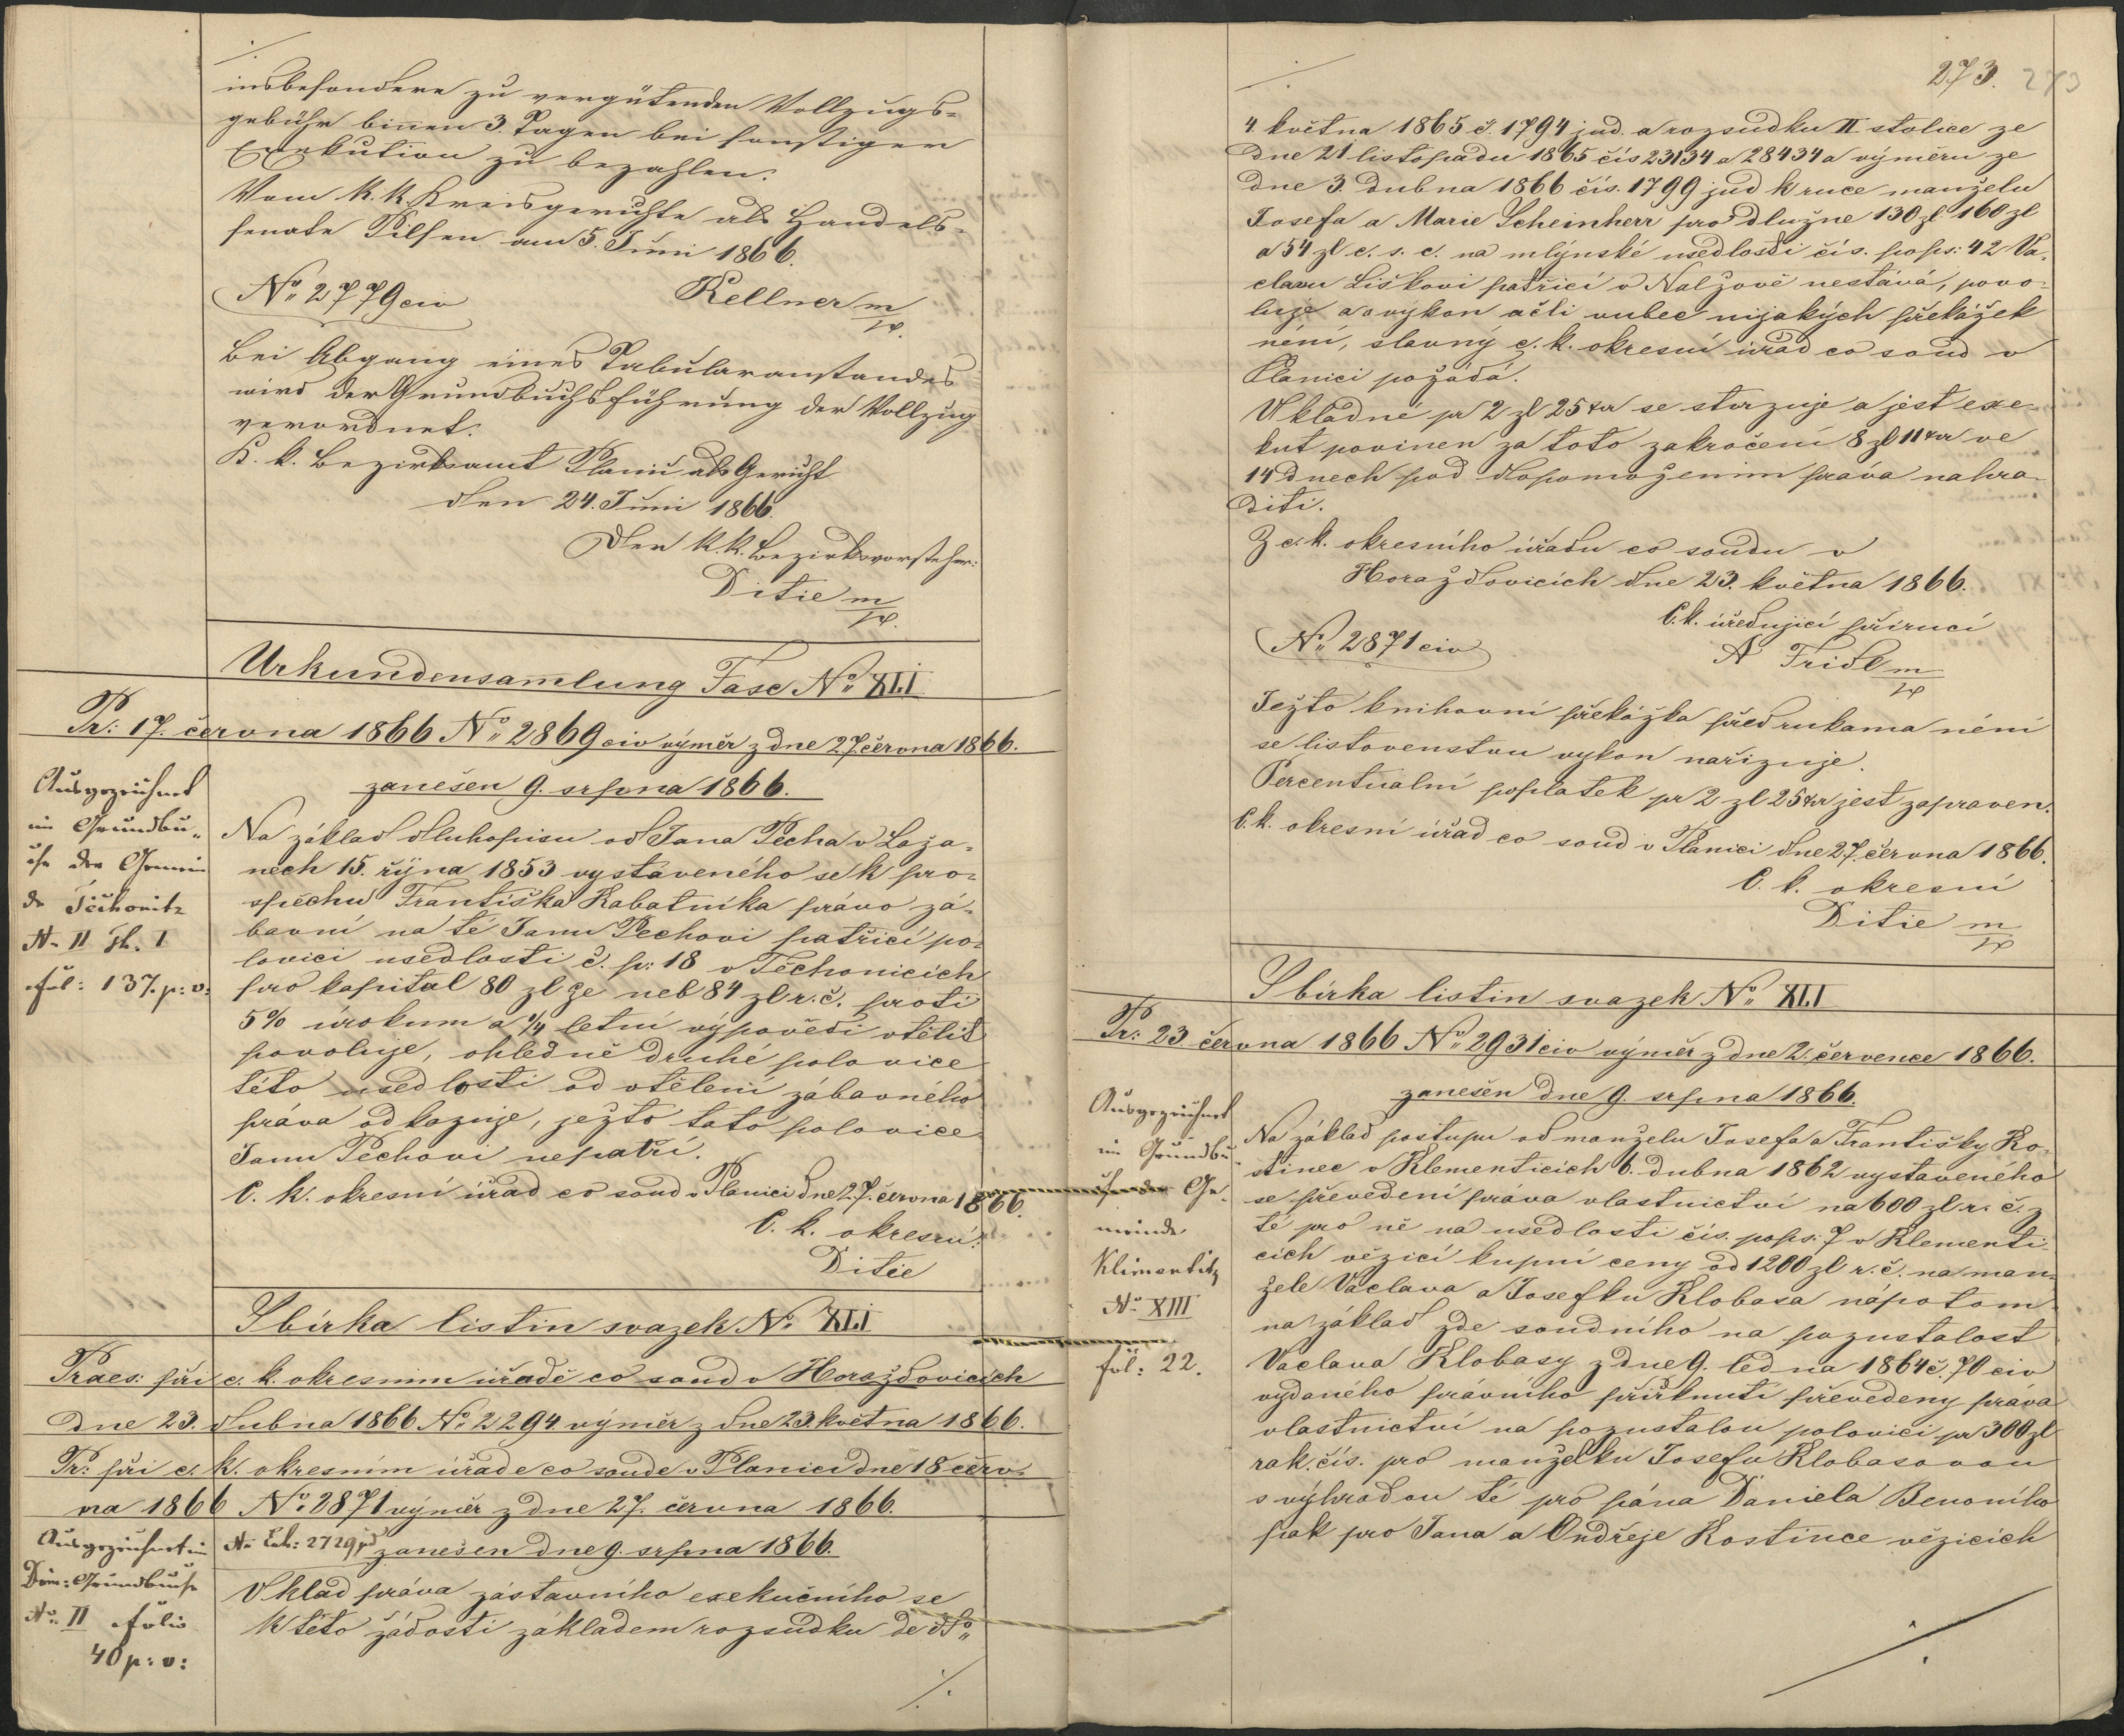 insbesondere zu vergütenden Vollzugs-
gebühr binnen 3. Tagen bei sonstiger
Exekution zu bezahlen.
Vom k. k. Kreisgerichte als Handels-
senate Pilsen am 5. Juni 1866.
No 2779 civ Kellner m/p.
Bei Abgang eines Tabularanstandes
wird der Grundbuchsführung der Vollzug
verordnet.
K. k. Bezirksamt Planic als Gericht
den 24. Juni 1866.
Der k. k. Bezirksvorsteher:
Ditie m/p.
Urkundensamlung Fasc No XLI
Pr: 17. června 1866 No 2869 civ výměr z dne 27. června 1866.
zanešen 9. srpna 1866.
Ausgezeichnet
im Grundbu-
che der Gemein
de Těchonitz
No II Th. I
fol: 137. p: v:
Na základ dluhopisu od Jana Pecha v Laža-
nech 15. října 1853 vystaveného se k pro-
spěchu Františka Kabatníka právo zá-
bavní na té Janu Pechovi patřící po-
lovici usedlosti č. p: 18 v Těchonicích
pro kapital 80 zl ze neb 84 zl r. č. proti
5% úrokum a 1/4 letní výpovědi vtěliti
povoluje, ohledně druhé polovice
této usedlosti od vtělení zábavného
práva odkazuje, ježto tato polovice
Janu Pechovi nepatří.
C. k. okresní úřad co soud v Planici dne 27. června 1866.
C. k. okresní:
Ditie
Sbírka listin svazek No XLI
Praes: při c. k. okresním úřadě co soud v Horažďovicích
dne 23. dubna 1866 No 2294 výměr z dne 23. května 1866.
Pr: při c. k. okresním úřade co soude v Planici dne 18 červ-
na 1866 No 2871 výměr z dne 27. června 1866.
zanešen dne 9. srpna 1866.
Ausgezeichnet im
Dom: Grundbuche
No II folio
40 p: v:
Vklad práva zástavního exekučního se
k této žádosti základem rozsudku de dto
./.
273. 273
./.
4. května 1865 č. 1794 jud. a rozsudku II. stolice ze
dne 21 listopadu 1865 čís 23134 a 28434 a výměru ze
dne 3. dubna 1866 čís. 1799 jud k ruce manželu
Josefa a Marie Scheinherr pro dlužne 130 zl 160 zl
a 54 zl c. s. c. na mlýnské usedlosti čís. pops: 42 Va-
clavu Liškovi patřící v Nalžově nestává, povo-
luje a o vykon ačli vubec nijakých překážek
není, slavný c. k. okresní úřad co soud v
Planici požádá.
Vkladné pr 2 zl 25 kr se stvrzuje a jest exe-
kut povinen za toto zakročení 8 zl 11 kr ve
14 dnech pod dopomožením práva nahra-
diti.
Z c. k. okresního úřadu co soudu v
Horažďovicích dne 23. května 1866.
C. k. úředující příručí
No 2871 civ A Fridl m/p
Ježto knihovní překážka před rukama není
se listovenstvu vykon nařizuje.
Percentualní poplatek pr 2 zl 25 kr jest zapraven.
C. k. okresní úřad co soud v Planici dne 27. června 1866.
C. k. okresní
Ditie m/p
Sbírka listin svazek No XLI
Pr: 23. června 1866 No 2931 civ výměr z dne 2. července 1866.
zanešen dne 9. srpna 1866.
Ausgezeichnet
im Grundbu-
che der Ge-
meinde
Klimentitz
No XIII
fol: 22.
Na základ postupu od manželu Josefa a Františky Ko-
stinec v Klementicích 6. dubna 1862 vystaveného
se převedení práva vlastnictví na 600 zl. r. č. z
té pro ně na usedlosti čís. pops: 7 v Klementi-
cích vězící kupní ceny od 1200 zl r. č. na man-
žele Václava a Josefku Klobasa nápotom
na základ zde soudního na pozustalost
Vaclava Klobasy z dne 9. ledna 1864 č. 70 civ
vydaného právního přiřknutí převedeny práva
vlastnictví na pozustalou polovici pr 300 zl
rak. čís. pro manželku Josefu Klobasovou
s výhradou té pro pána Daniela Benoního
pak pro Jana a Ondřeje Kostince vězících
./.